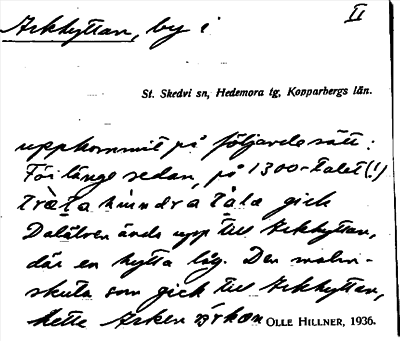 Arkhyttan, by i
II
St. Skedvi sn, Hedemora tg, Kopparbergs län.
uppkommit på följande sätt:
För länge sedan, på 1300-talet (!)
træta hundra tåla gick
Dalälven ända upp till Arkhyttan,
där en hytta låg. Den malm-
skuta som gick till Arkhyttan,
hette Arken
OLLE HILLNER, 1936.